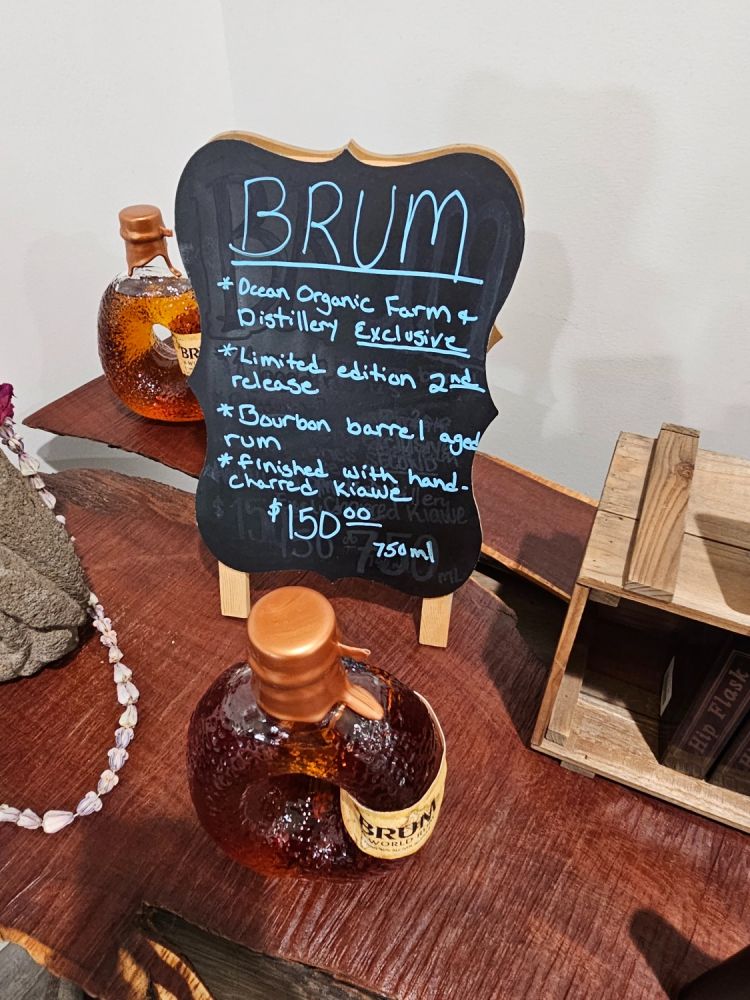 BRUM
* Ocean Organic Farm &
Distillery Exclusive
* Limited edition 2nd
release
* Bourbon barrel aged
rum
* finished with hand-
charred Kiawe
$150.00
750ml
BR
BRUM
WORLD
Hip Flask